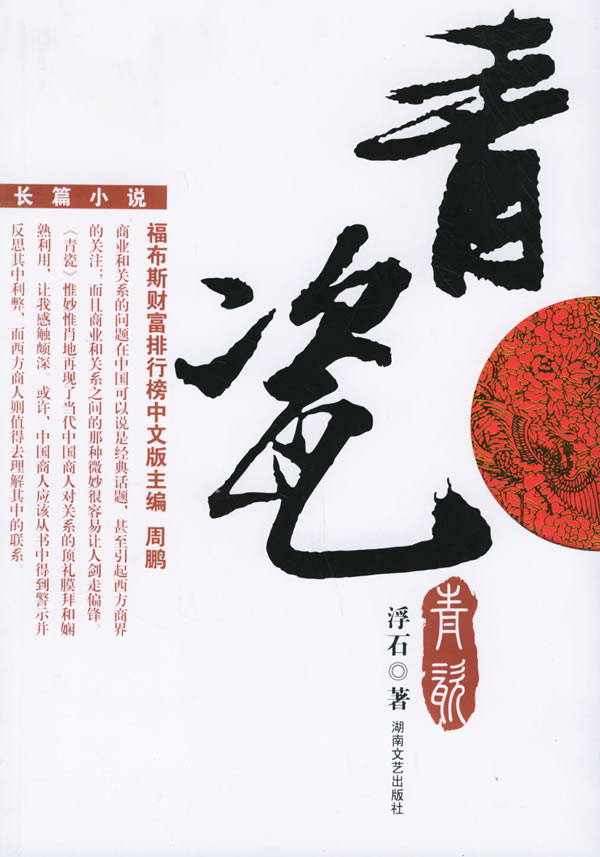 青瓷
青瓷
浮石◎著
湖南文艺出版社
长篇小说
福布斯财富排行榜中文版主编 周鹏
商业和关系的问题在中国可以说是经典话题，甚至引起西方商界
的关注；而且商业和关系之间的那种微妙很容易让人剑走偏锋。
《青瓷》惟妙惟肖地再现了当代中国商人对关系的顶礼膜拜和娴
熟利用，让我感触颇深。或许，中国商人应该从书中得到警示并
反思其中利弊，而西方商人则值得去理解其中的联系。